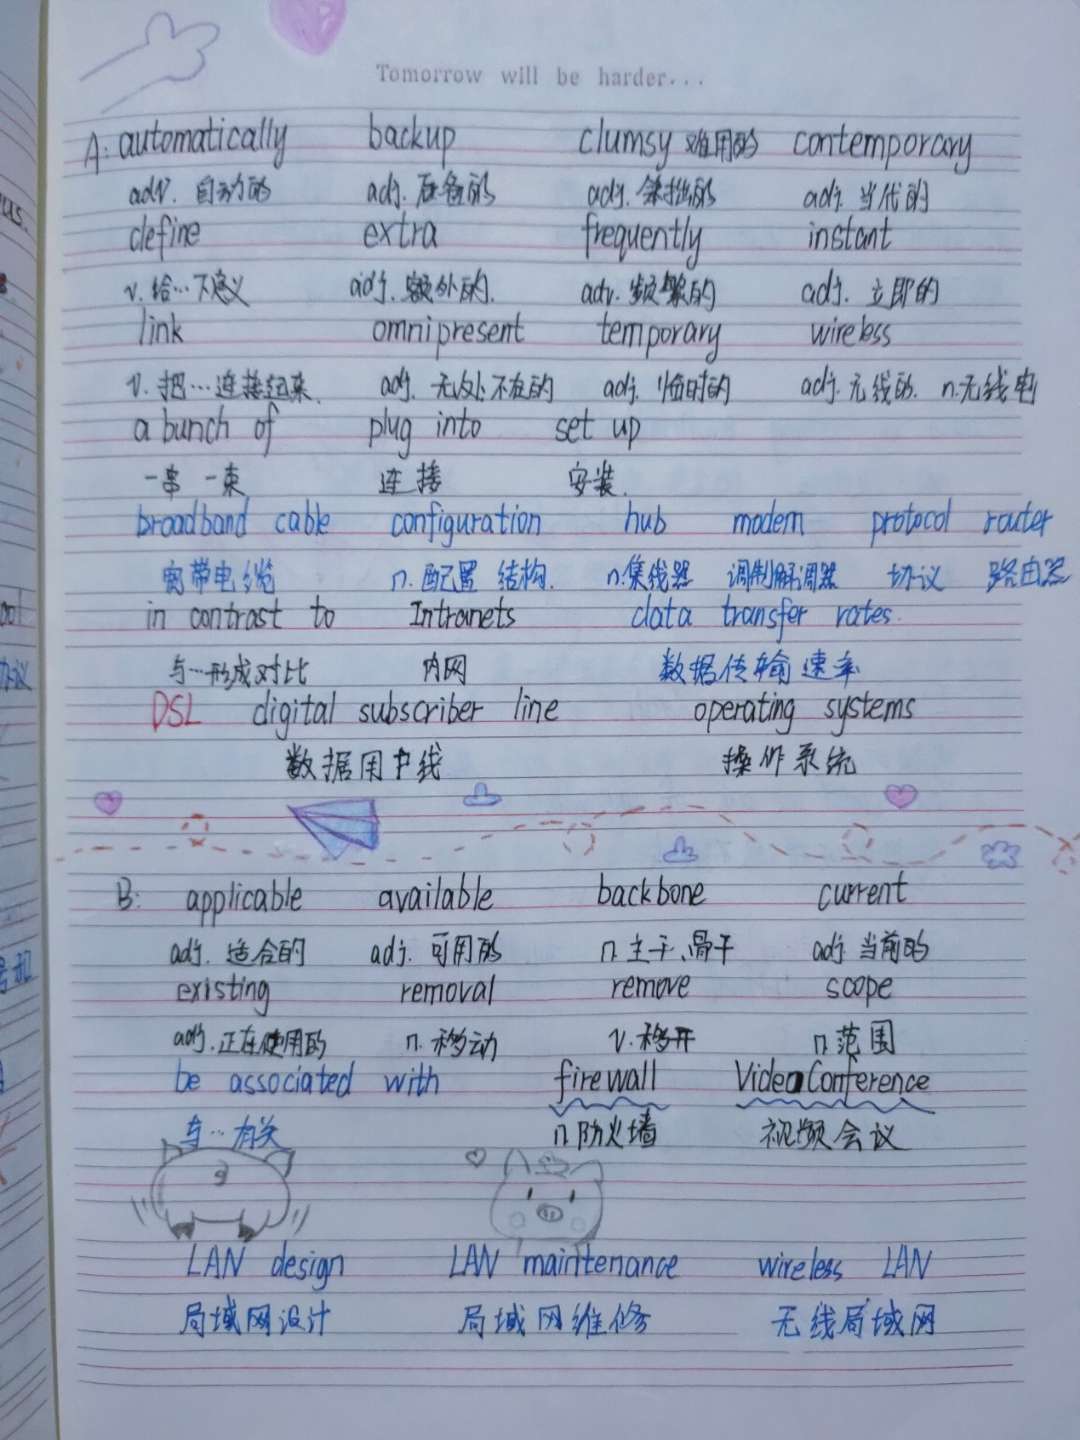 Tomorrow will be harder...
A: automatically backup clumsy 难用的 contemporary
adv. 自动的 adj. 后备的 adj. 笨拙的 adj. 当代的
define extra frequently instant
v. 给…下定义 adj. 额外的. adv. 频繁的 adj. 立即的
link omnipresent temporary wireless
v. 把…连接起来. adj. 无处不在的 adj. 临时的 adj. 无线的. n.无线电
a bunch of plug into set up
一串 一束 连接 安装.
broadband cable configuration hub modem protocol router
宽带电缆 n. 配置 结构. n.集线器 调制解调器 协议 路由器
in contrast to Intranets data transfer rates.
与…形成对比 内网 数据传输速率
DSL digital subscriber line operating systems
数据用户线 操作系统
B: applicable available backbone current
adj. 适合的 adj. 可用的 n.主干、骨干 adj. 当前的
existing removal remove scope
adj. 正在使用的 n. 移动 v. 移开 n.范围
be associated with firewall Video Conference
与…有关 n.防火墙 视频会议
LAN design LAN maintenance wireless LAN
局域网设计 局域网维修 无线局域网
协议